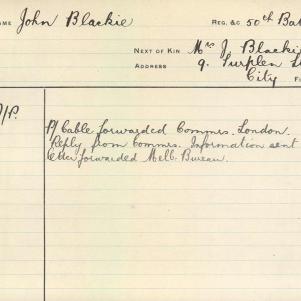 NAME John Blackie REG. &C 50th Bat
NEXT OF KIN Mrs J. Blackie
ADDRESS 9. St
City
P/ Cable forwarded Commrs. London.
Reply from Commrs. Information sent
forwarded Melb. Bureau.